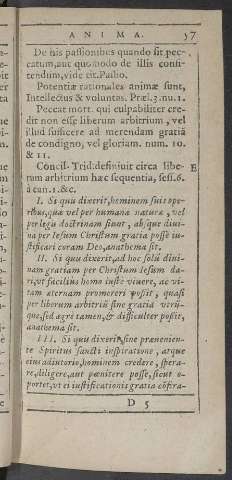 ANIMA. 57
De his passionibus quando sit pec-
catum, aut quomodo de illis consi-
tendum, vide tit. Passio.
Potentiæ rationales animæ sunt,
Intellectus & voluntas. Præl. 3. nu. 1.
Peccat mort. qui culpabiliter cre-
dit non esse liberum arbitrium, vel
illud sufficere ad merendam gratiã
de condigno, vel gloriam. num. 10.
& 11.
Concil. Trid. definiuit circa libe- E
rum arbitrium hæc sequentia, sess. 6.
à can. 1. &c.
I. Si quis dixerit, hominem suis ope-
ribus, quæ vel per humanæ naturæ, vel
per legis doctrinam fiunt, absque diui-
na per Iesum Christum gratia posse iu-
stificari coram Deo, anathema sit.
II. Si quis dixerit, ad hoc solũ diui-
nam gratiam per Christum Iesum da-
ri, vt facilius homo iustè viuere, ac vi-
tam æternam promereri possit, quasi
per liberum arbitriũ sine gratia vtrũ-
que, sed ægrè tamen, & difficulter possit,
anathema sit.
III. Si quis dixerit, sine præuenien-
te Spiritus sancti inspiratione, atque
eius adiutorio, hominem credere, spera-
re, diligere, aut pœnitere posse, sicut o-
portet, vt ei iustificationis gratia cõfera-
D 5